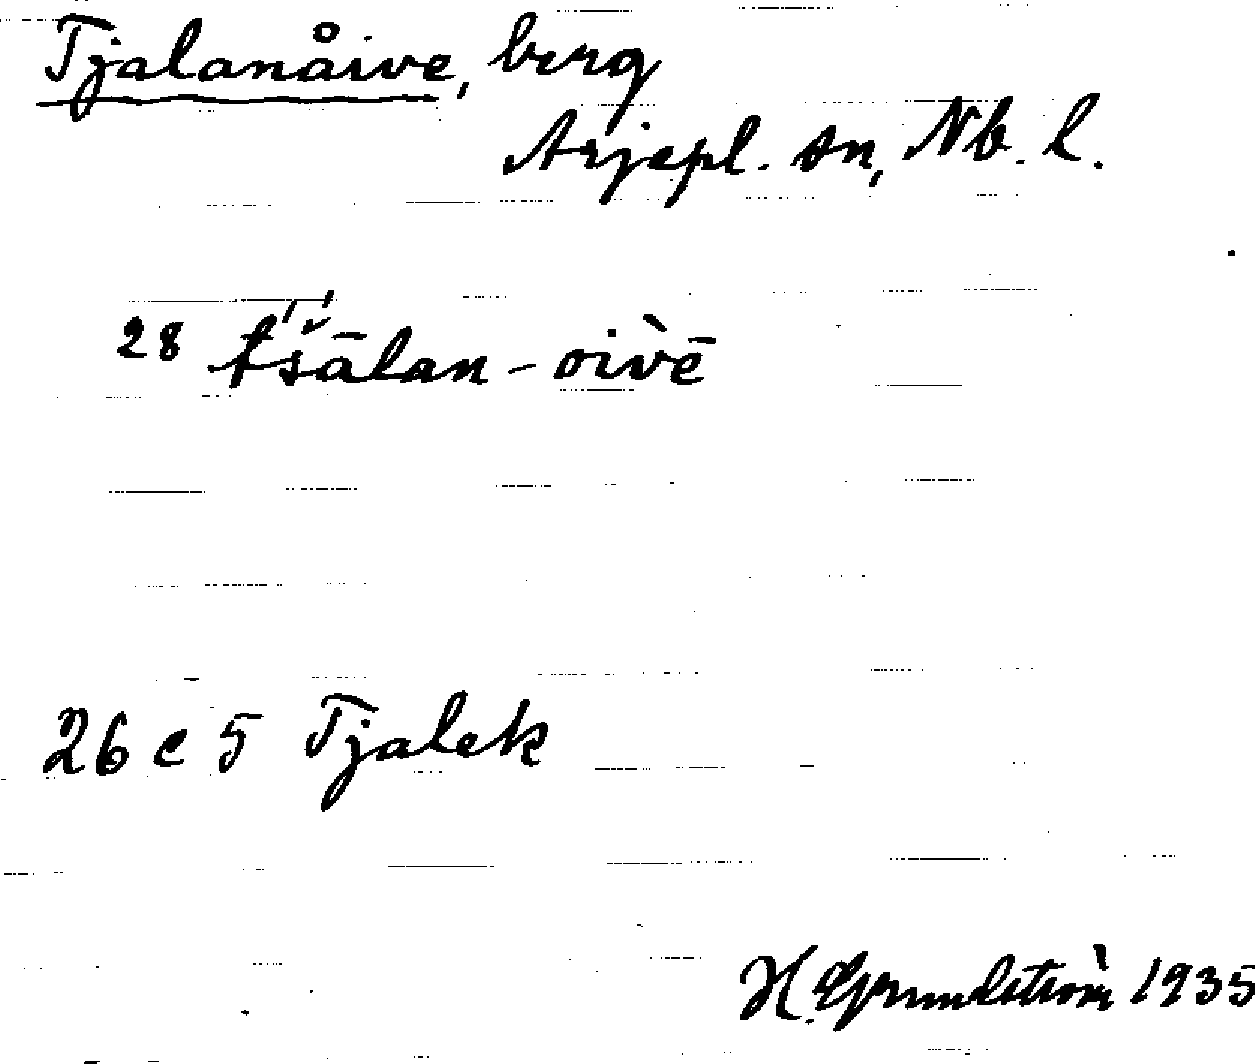 Tjalanåive, berg
Arjepl. sn, Nb. l.
28 t́š́ālan-oìvē
26 c 5 Tjalek
H. Grundström 1935